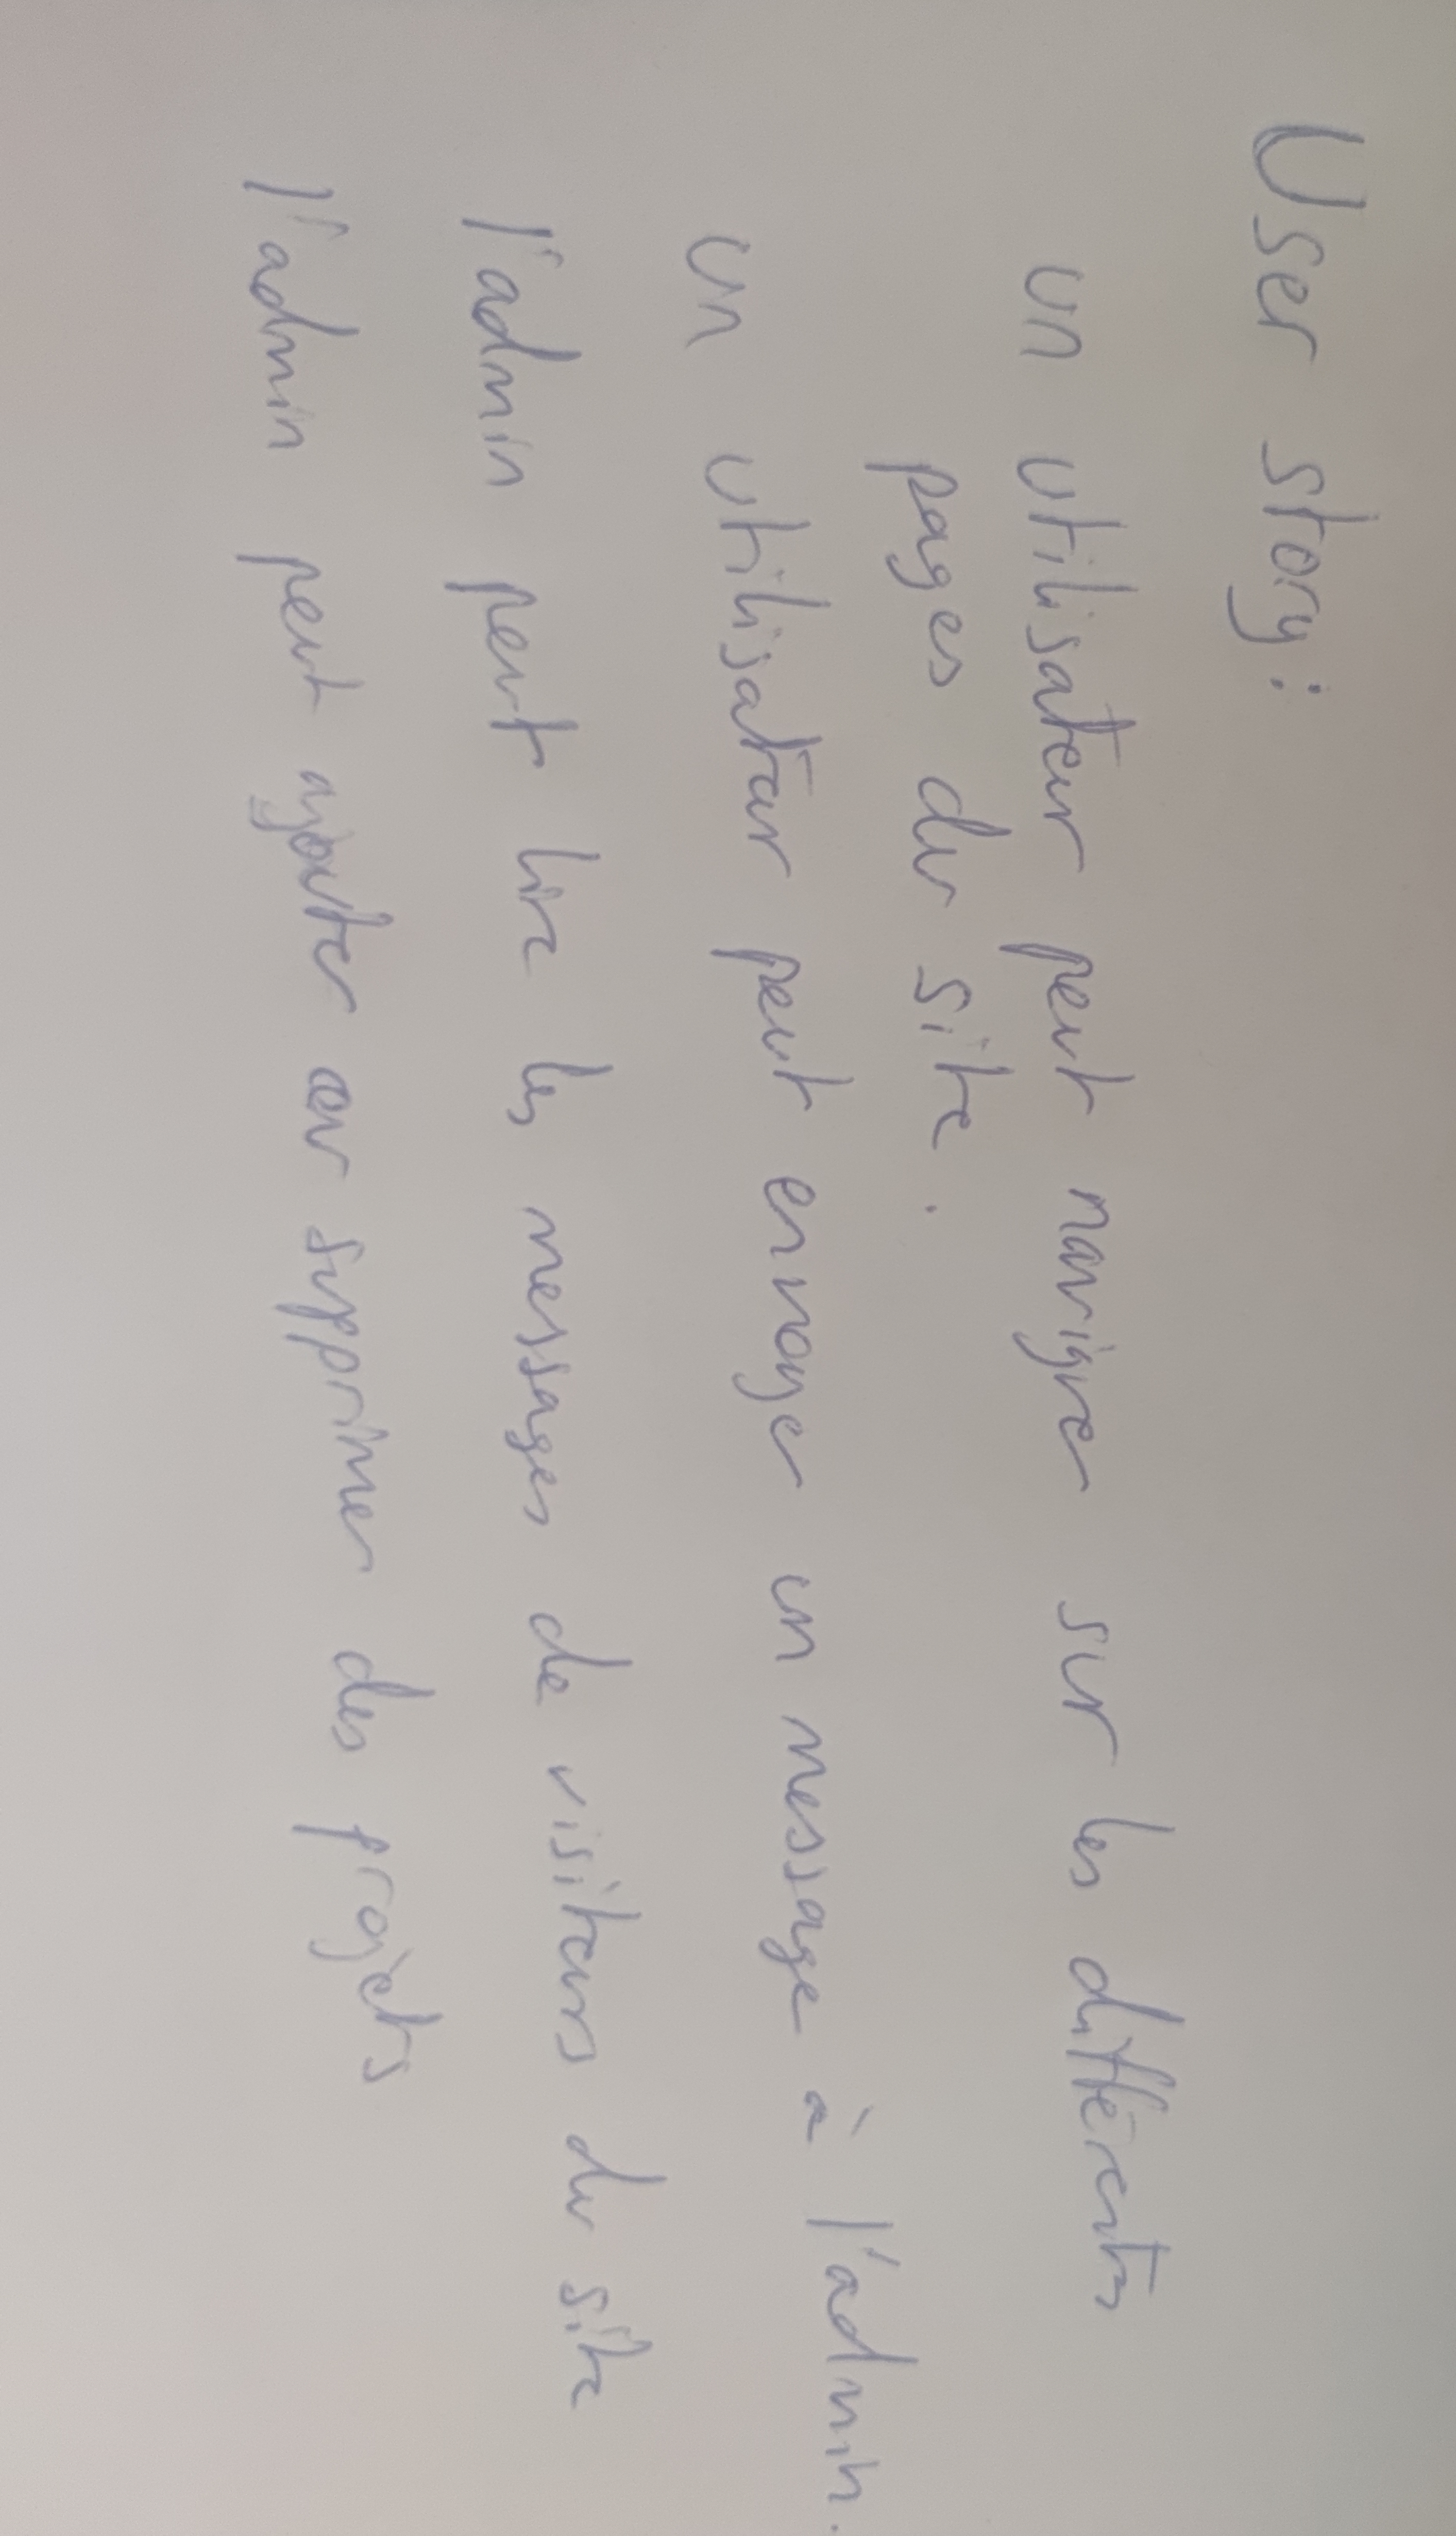 User story :
un utilisateur peut navigre sur les différents
pages du site.
un utilisateur peut envoyer un message à l'admin.
l'admin peut lire les messages de visiteurs du site
l'admin peut ajouter ou supprimer des projets